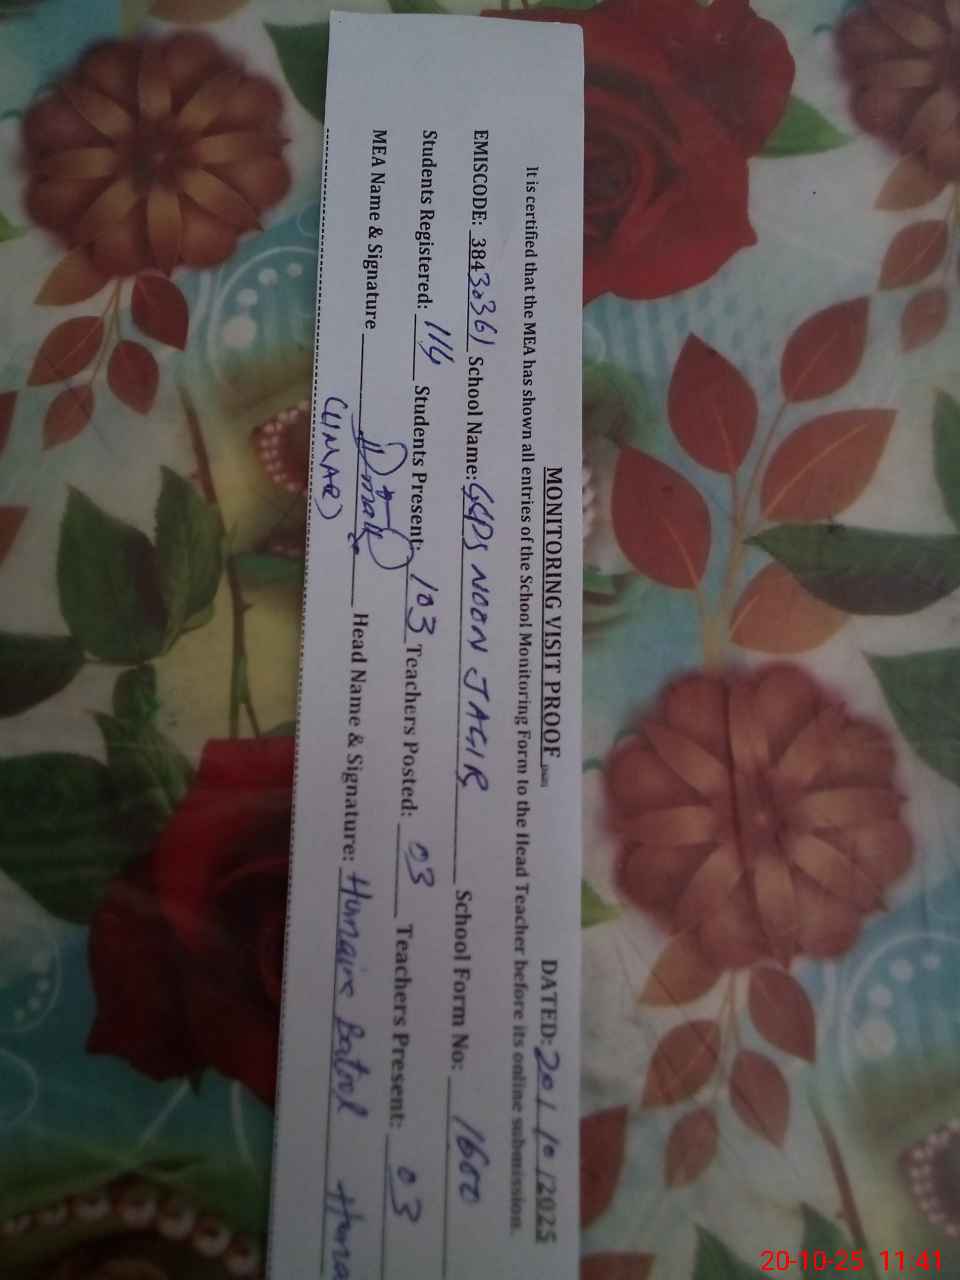 MONITORING VISIT PROOF DATED: 20/10/2025
It is certified that the MEA has shown all entries of the School Monitoring Form to the Head Teacher before its online submission.
EMISCODE: 38430361 School Name: GGPS NOON JAGIR School Form No: 1600
Students Registered: 114 Students Present: 103 Teachers Posted: 03 Teachers Present: 03
MEA Name & Signature Head Name & Signature: Humaira Batool Huma
(UMAR)
20-10-25 11:41